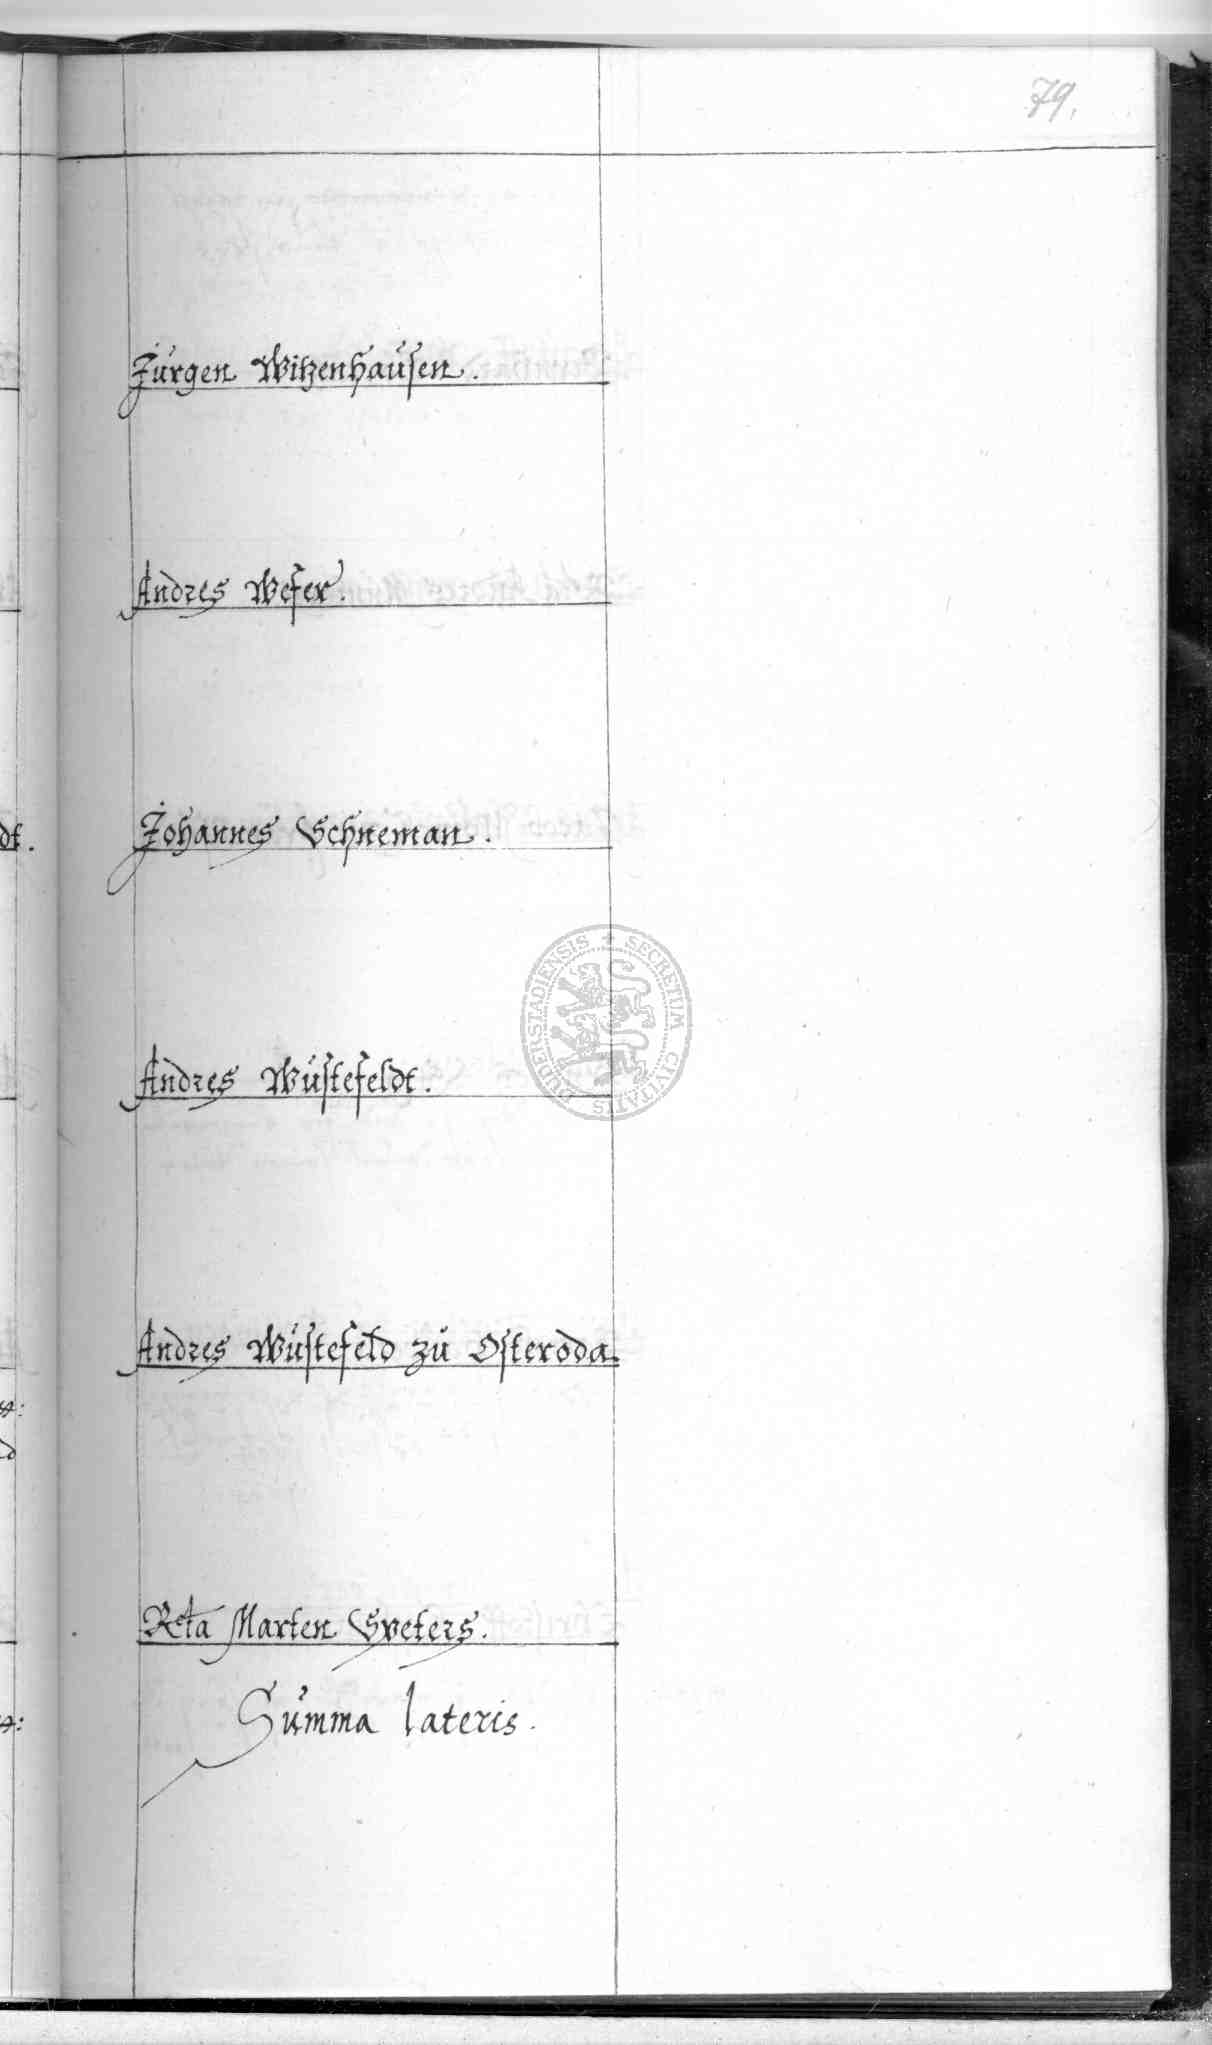 79.
Jürgen Witzenhausen.
Andres Wefer.
Johannes Schneman.
dt.
SECRETUM CIVITATIS DUDERSTADIENSIS
Andres Wüstefeldt.
Andres Wüstefeld zu Osteroda.
Rcta Marten
Summa lateris.